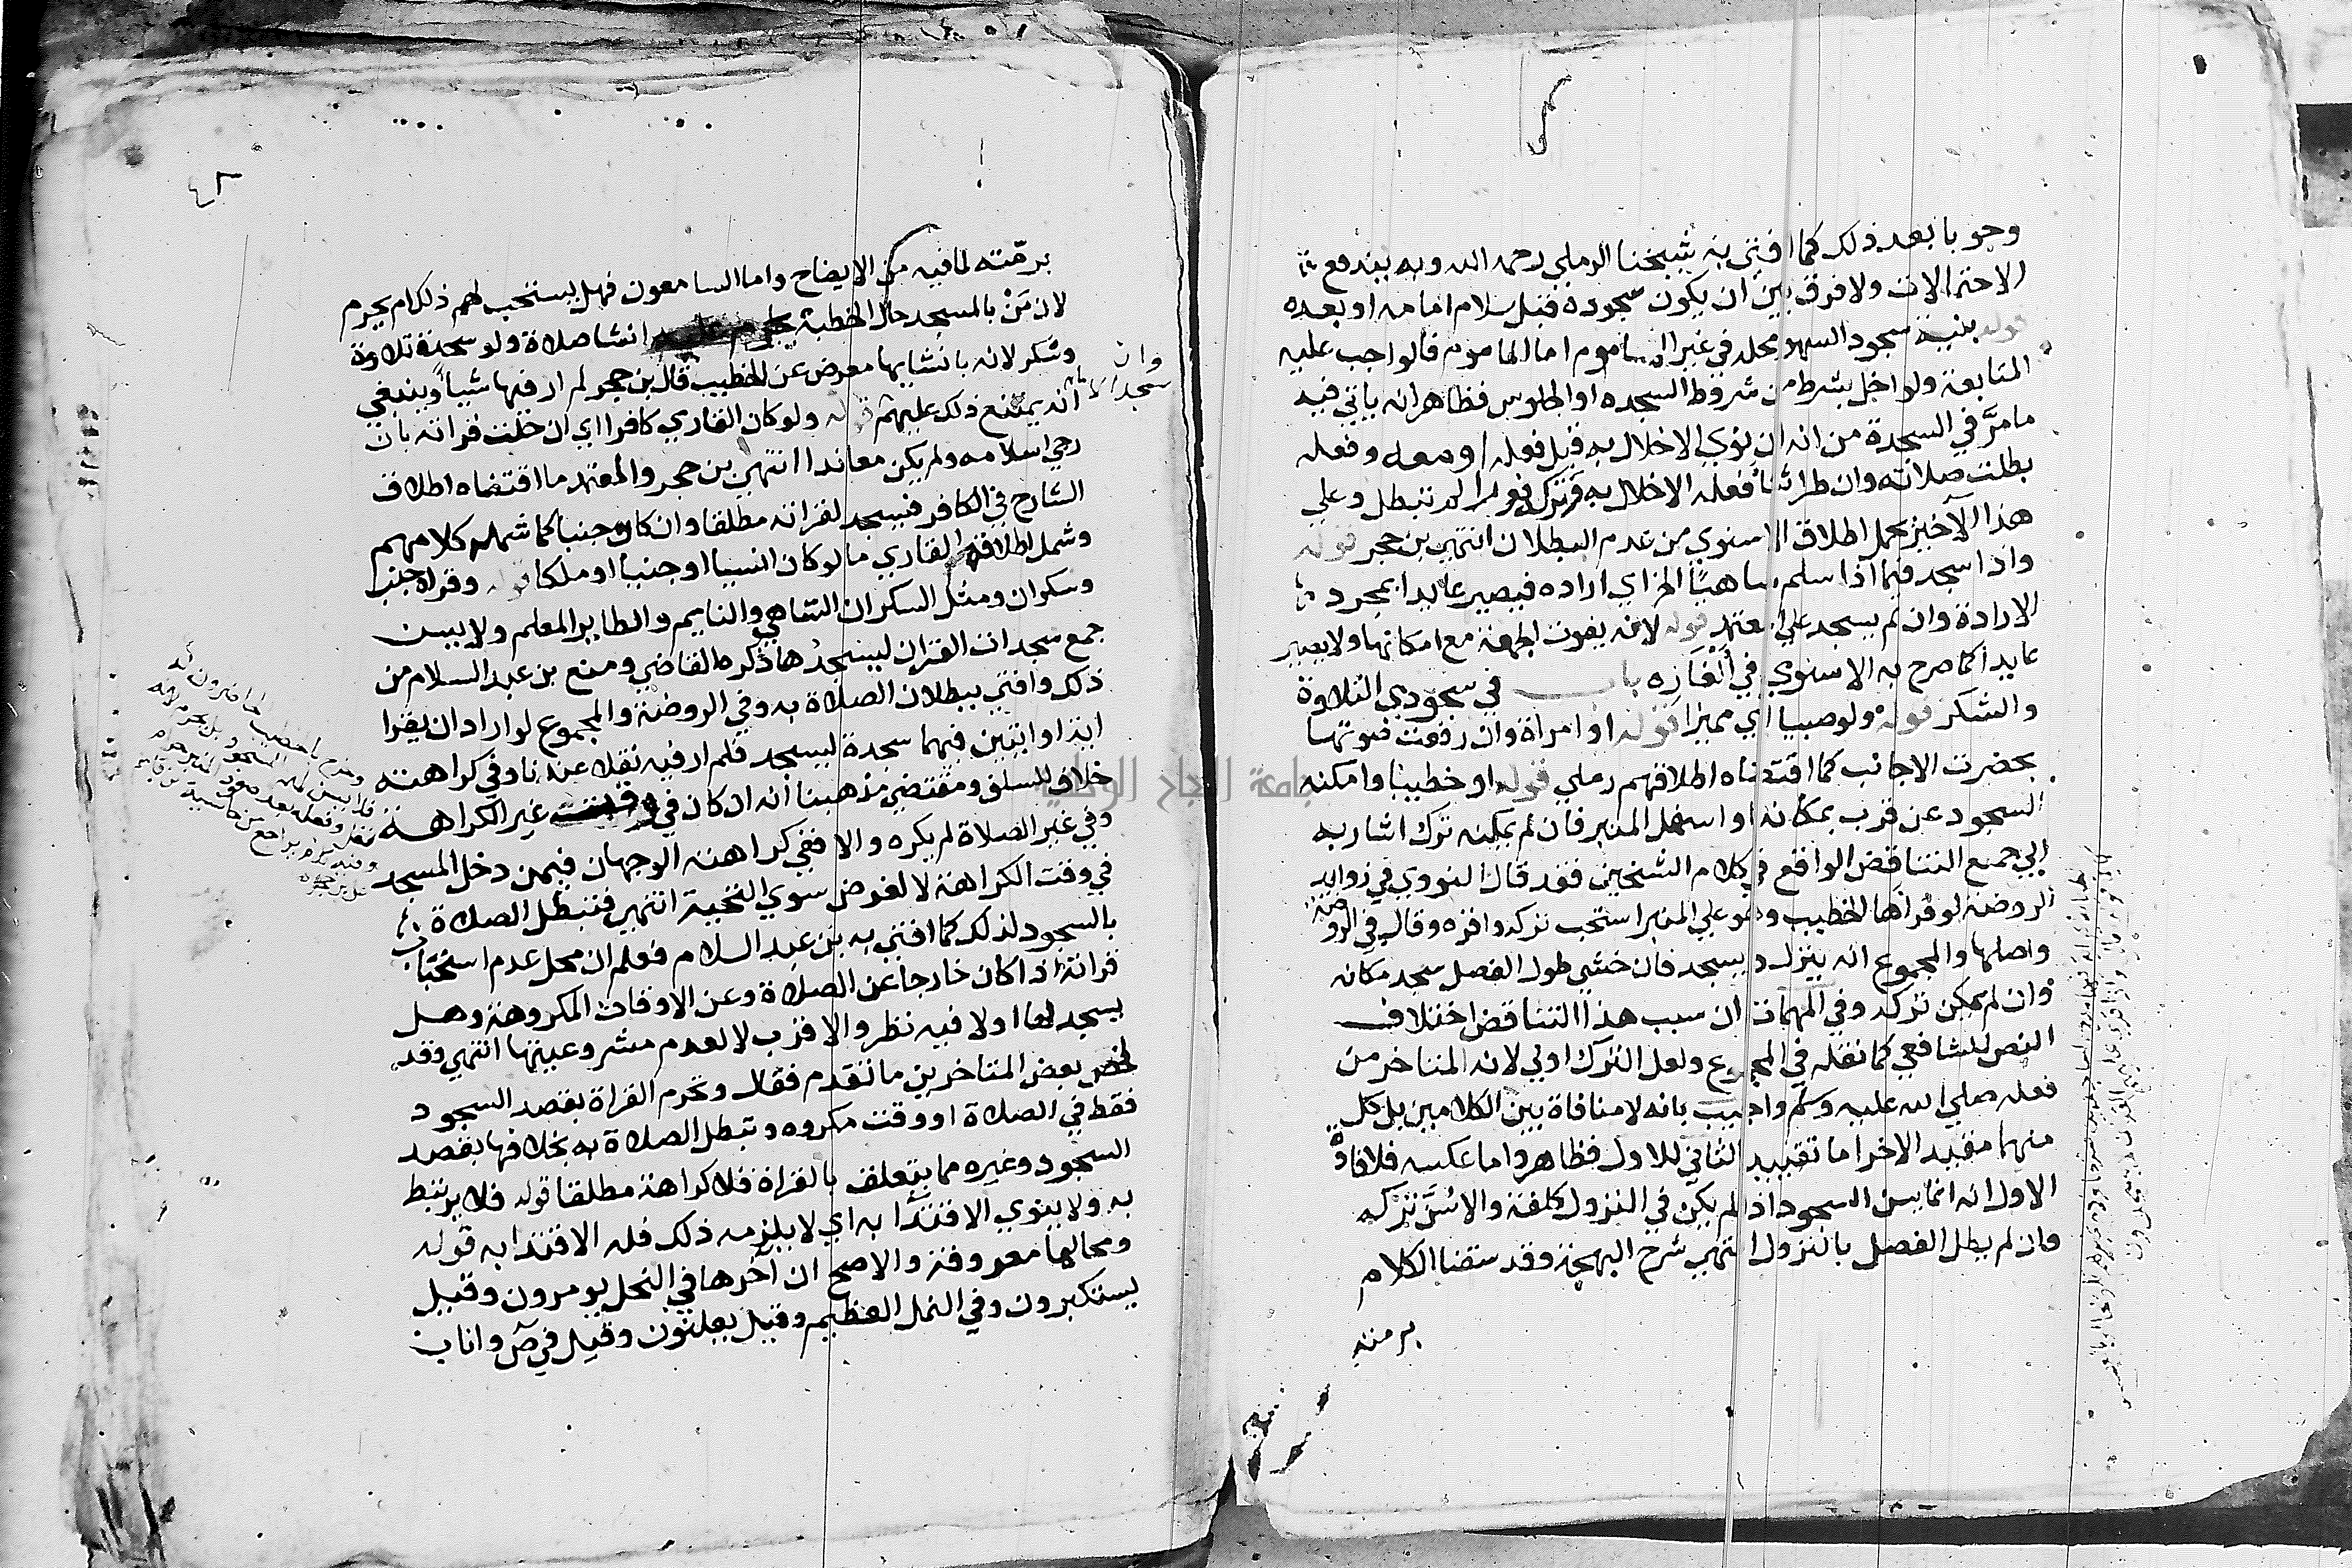 وجوبا بعد ذلك كما افتي به شيخنا الرملي رحمه الله وبه يندفع
الاحتمالات ولا فرق بين ان يكون سجوده قبل سلام امامه او بعده
قوله بنية سجود السهو محله في غير الماموم اما الماموم فالواجب عليه
المتابعة ولو اخل بشرط من شروط السجده او الجلوس فظاهر انه ياتي فيه
ما مرَّ في السجدة من انه ان نوي الاخلال به قبل فعله او معه وفعله
بطلت صلاته وان طرا اثنا فعله الاخلال به فترك فورا لم تبطل وعلي
هذا الاخير يحمل اطلاق الاسنوي من عدم البطلان انتهي بن حجر قوله
واذا سجد فيما اذا سلم ساهيًا الخ اي اراده فيصير عايدا بمجرد
الارادة وان لم يسجد علي المعتمد قوله لانه يفوت الجمعة مع امكانها ولا يصير
عايدا كما صرح به الاسنوي في الغازه باب في سجودي التلاوة
والشكر قوله ولو صبيا اي مميزا قوله او امراة وان رفعت صوتها
بحضرت الاجانب كما اقتضاه اطلاقهم رملي قوله او خطيبا وامكنه
السجود عن قرب بمكانه او اسفل المنبر فان لم يمكنه ترك اشار به
الي جمع التناقض الواقع في كلام الشيخين فقد قال النووي في زوايد
الروضة لو قراها الخطيب وهو علي المنبر استحب تركه واقره وقال في الروضة
واصلها والمجموع انه ينزل ويسجد فان خشي طول الفصل سجد مكانه
وان لم يمكن تركه وفي المهمات ان سبب هذا التناقض اختلاف
النص للشافعي كما نقله في المجموع ولعل الترك اولي لانه المتاخر من
فعله صلي الله عليه وسلم واجيب بانه لا منافاة بين الكلامين بل كل
منهما مقيد الاخر اما تقييد الثاني للاول فظاهر واما عكسه فلافادة
الاول انه انما يسن السجود اذا لم يكن في النزول كلفة والا سُنَّ تركه
وان لم يطل الفصل بالنزول انتهي شرح البهجة وقد سقنا الكلام
برمته
برمّته لما فيه من الايضاح واما السامعون فهل يستحب لهم ذلك ام يحرم
لان مَنْ بالمسجد حال الخطبة يحرم عليه انشا صلاة ولو سجدة تلاوة
وشكر لانه بانشايها معرض عن الخطيب قال بن حجر لم ار فيها شيأ وينبغي
انه يمتنع ذلك عليهم قوله ولو كان القاري كافرا اي ان حلت قراته بان
رجي اسلامه ولم يكن معاندا انتهي بن حجر والمعتمد ما اقتضاه اطلاق
الشارح في الكافر فيسجد لقراته مطلقا وان كان جنبا كما شمله كلامهم
وشمل اطلاقه القاري ما لو كان انسيا او جنيا او ملكا قوله وقراة جنب
وسكران ومثل السكران الساهي والنايم والطاير المعلم ولا يسن
جمع سجدات القران ليسجدها ذكره القاضي ومنع بن عبد السلام من
ذلك وافتي ببطلان الصلاة به وفي الروضة والمجموع لو اراد ان يقرا
اية او ايتين فيهما سجدة ليسجد فلم ار فيه نقلا عندنا وفي كراهته
خلاف للسلف ومقتضي مذهبنا انه ان كان في وقت غير الكراهة
وفي غير الصلاة لم يكره والا ففي كراهته الوجهان فيمن دخل المسجد
في وقت الكراهة لا لغرض سوي التحية انتهي فتبطل الصلاة
بالسجود لذلك كما افتي به بن عبد السلام فعلم ان محل عدم استحباب
قراتها اذا كان خارجا عن الصلاة وعن الاوقات المكروهة وهل
يسجد لها اولا فيه نظر والاقرب لا لعدم مشروعيتها انتهي وقد
لخص بعض المتاخرين ما تقدم فقال وتحرم القراة بقصد السجود
فقط في الصلاة او وقت مكروه وتبطل الصلاة به بخلافها بقصد
السجود وغيره مما يتعلق بالقراة فلا كراهة مطلقا قوله فلا يرتبط
به ولا ينوي الاقتدا به اي لا يلزمه ذلك فله الاقتدا به قوله
ومحالها معروفة والاصح ان آخرها في النحل يومرون وقيل
يستكبرون وفي النمل العظيم وقيل يعلنون وقيل في صٓ واناب